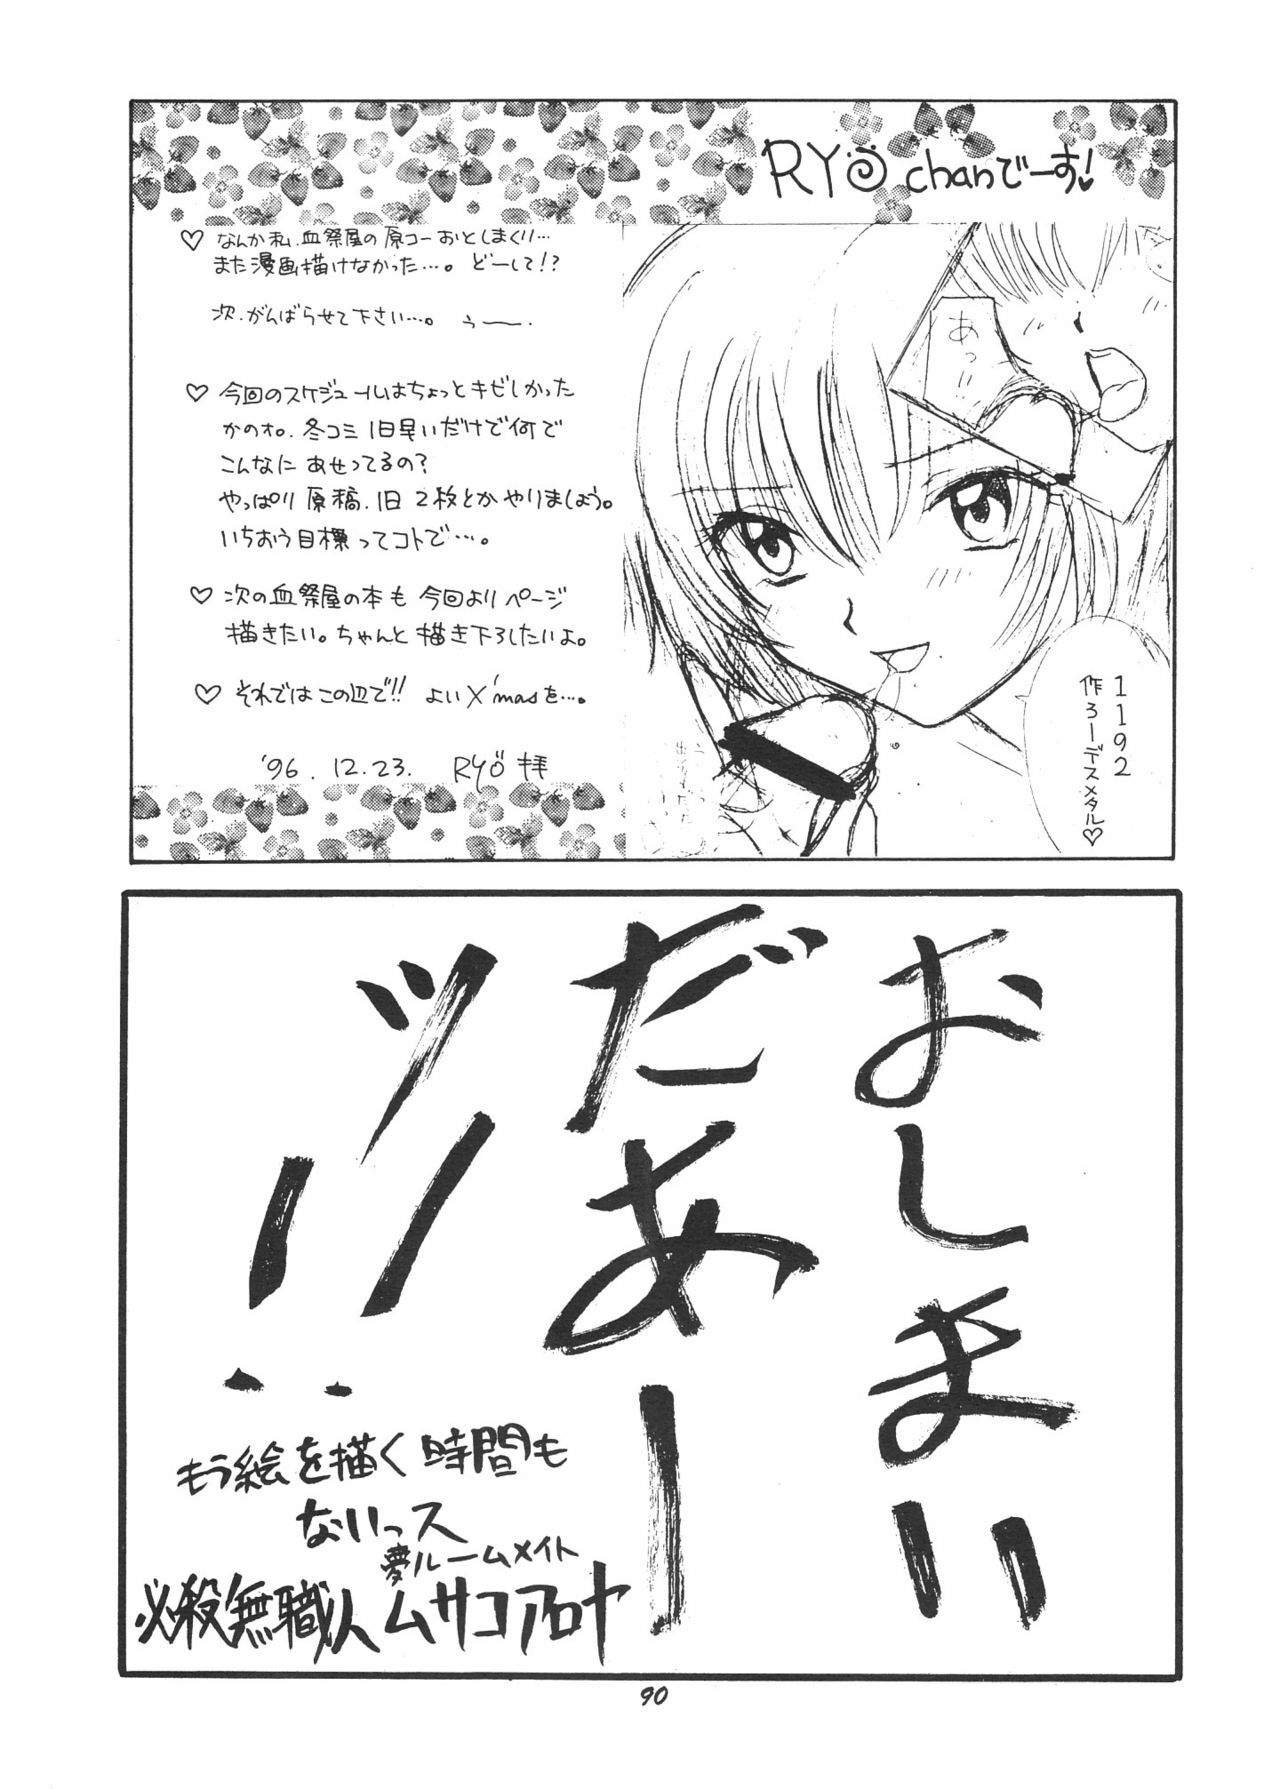 RYO chanでーす!
♡ なんか私、血祭屋の原コーおとしまくり…
また漫画描けなかった…。どーして!?
次、がんばらせて下さい…。うー。
♡ 今回のスケジュールはちょっとキビしかった
かのォ。冬コミ1日早いだけで何で
こんなにあせってるの?
やっぱり原稿、1日2枚とかやりましょう。
いちおう目標ってコトで…。
♡ 次の血祭屋の本も今回よりページ
描きたい。ちゃんと描き下ろしたいよ。
♡ それではこの辺で!! よいX'masを…。
'96.12.23. RYÖ 拝
あっ!!
1192
作ろーデスメタル♡
おしまい
だあー
ッ!!
もう絵を描く時間も
ないっス
夢ルームメイト
必殺無職人ムサコアロヤ
90